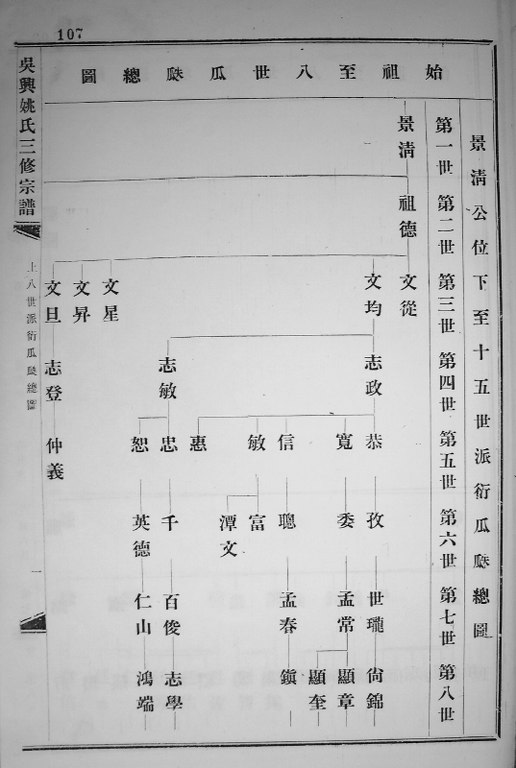 107
始祖至八世瓜瓞總圖
景淸公位下至十五世派衍瓜瓞總圖
第一世
第二世
第三世
第四世
第五世
第六世
第七世
第八世
景淸
祖德
文從
文均
文星
文昇
文旦
志政
志敏
志登
恭
寬
信
敏
惠
忠
恕
仲義
孜
委
聰
富
潭文
千
英德
世瓏
孟常
孟春
百俊
仁山
尙錦
顯章
顯奎
鎭
志學
鴻端
吳興姚氏三修宗譜
上八世派衍瓜瓞總圖
一